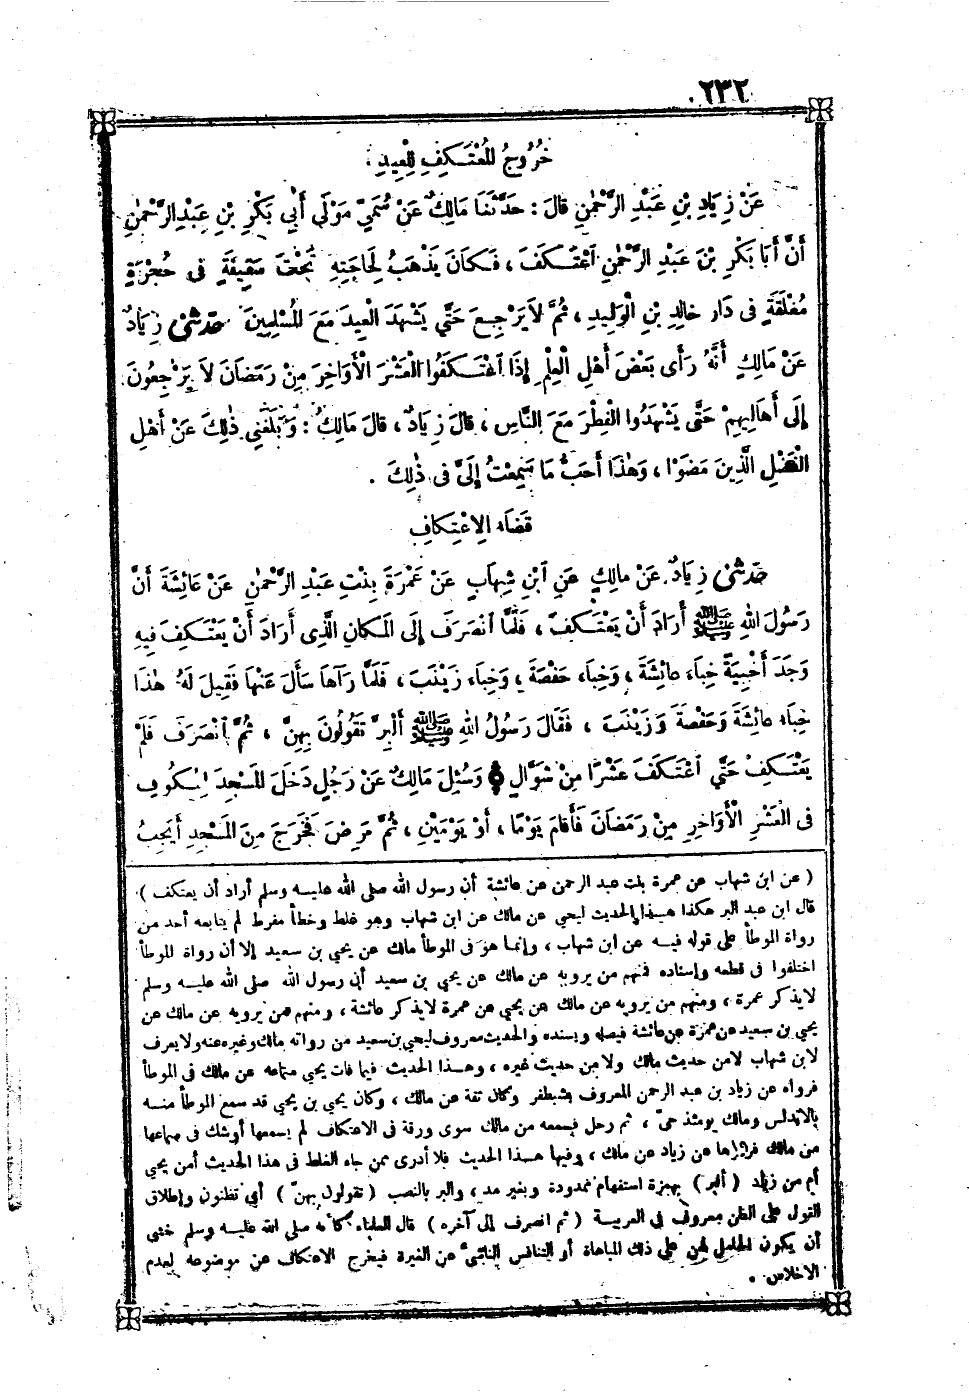 ٢٣٢
خُرُوجُ الْمُعْتَكِفِ لِلْعِيدِ .
عَنْ زِيَادِ بْنِ عَبْدِ الرَّحْمٰنِ قَالَ : حَدَّثَنَا مَالِكٌ عَنْ سُمَيٍّ مَوْلَى أَبِي بَكْرِ بْنِ عَبْدِ الرَّحْمٰنِ
أَنَّ أَبَا بَكْرِ بْنَ عَبْدِ الرَّحْمٰنِ اعْتَكَفَ ، فَكَانَ يَذْهَبُ لِحَاجَتِهِ تَحْتَ سَقِيفَةٍ فِى حُجْرَةٍ
مُغْلَقَةٍ فِى دَارِ خَالِدِ بْنِ الْوَلِيدِ ، ثُمَّ لَا يَرْجِعَ حَتَّى يَشْهَدَ الْعِيدَ مَعَ الْمُسْلِمِينَ حَدَّثَنِى زِيَادٌ
عَنْ مَالِكٍ أَنَّهُ رَأَى بَعْضَ أَهْلِ الْعِلْمِ إِذَا اعْتَكَفُوا الْعَشْرَ الْأَوَاخِرَ مِنْ رَمَضَانَ لَا يَرْجِعُونَ
إِلَى أَهَالِيهِمْ حَتَّى يَشْهَدُوا الْفِطْرَ مَعَ النَّاسِ ، قَالَ زِيَادٌ ، قَالَ مَالِكٌ : وَبَلَغَنِى ذٰلِكَ عَنْ أَهْلِ
الْفَضْلِ الَّذِينَ مَضَوْا ، وَهٰذَا أَحَبُّ مَا سَمِعْتُ إِلَىَّ فِى ذٰلِكَ .
قَضَاءُ الِاعْتِكَافِ
حَدَّثَنِى زِيَادٌ عَنْ مَالِكٍ عَنِ ابْنِ شِهَابٍ عَنْ عَمْرَةَ بِنْتِ عَبْدِ الرَّحْمٰنِ عَنْ عَائِشَةَ أَنَّ
رَسُولَ اللهِ ﷺ أَرَادَ أَنْ يَعْتَكِفَ ، فَلَمَّا انْصَرَفَ إِلَى الْمَكَانِ الَّذِى أَرَادَ أَنْ يَعْتَكِفَ فِيهِ
وَجَدَ أَخْبِيَةً خِبَاءَ عَائِشَةَ ، وَخِبَاءَ حَفْصَةَ ، وَخِبَاءَ زَيْنَبَ ، فَلَمَّا رَآهَا سَأَلَ عَنْهَا فَقِيلَ لَهُ هٰذَا
خِبَاءُ عَائِشَةَ وَحَفْصَةَ وَزَيْنَبَ ، فَقَالَ رَسُولُ اللهِ ﷺ آلْبِرَّ تَقُولُونَ بِهِنَّ ، ثُمَّ انْصَرَفَ فَلَمْ
يَعْتَكِفْ حَتَّى اعْتَكَفَ عَشْرًا مِنْ شَوَّالٍ وَسُئِلَ مَالِكٌ عَنْ رَجُلٍ دَخَلَ الْمَسْجِدَ لِعُكُوفٍ
فِى الْعَشْرِ الْأَوَاخِرِ مِنْ رَمَضَانَ فَأَقَامَ يَوْمًا ، أَوْ يَوْمَيْنِ ، ثُمَّ مَرِضَ فَخَرَجَ مِنَ الْمَسْجِدِ أَيَجِبُ
( عن ابن شهاب عن عمرة بنت عبد الرحمن عن عائشة أن رسول الله صلى الله عليه وسلم أراد أن يعتكف )
قال ابن عبد البر هكذا هذا الحديث ليحي عن مالك عن ابن شهاب وهو غلط وخطأ مفرط لم يتابعه أحد من
رواة الموطأ على قوله فيه عن ابن شهاب ، وإنما هو فى الموطأ مالك عن يحي بن سعيد إلا أن رواة الموطأ
اختلفوا فى قطعه وإسناده فمنهم من يرويه عن مالك عن يحي بن سعيد أن رسول الله صلى الله عليه وسلم
لا يذكر عمرة ، ومنهم من يرويه عن مالك عن يحي عن عمرة لا يذكر عائشة ، ومنهم من يرويه عن مالك عن
يحي بن سعيد عن عمرة عن عائشة فيصله ويسنده والحديث معروف ليحي بن سعيد من رواته مالك وغيره عنه ولا يعرف
لابن شهاب لا من حديث مالك ولا من حديث غيره ، وهذا الحديث فيما فات يحي سماعه عن مالك فى الموطأ
فرواه عن زياد بن عبد الرحمن المعروف بشبطون وكان ثقة عن مالك ، وكان يحي بن يحي قد سمع الموطأ منه
بالاندلس ومالك يومئذ حىّ ، ثم رحل فسمعه من مالك سوى ورقة فى الاعتكاف لم يسمعها أو شك فى سماعها
من مالك فرواها عن زياد عن مالك ، وفيها هذا الحديث فلا أدرى ممن جاء الغلط فى هذا الحديث أمن يحي
أم من زياد ( آلبر ) بهمزة استفهام ممدودة وبغير مد ، والبر بالنصب ( تقولون بهنّ ) أى تظنون وإطلاق
القول على الظن معروف فى العربية ( ثم انصرف إلى آخره ) قال العلماء كأنه صلى الله عليه وسلم خشى
أن يكون الحامل لهن على ذلك المباهاة أو التنافس الناشئ عن الغيرة فيخرج الاعتكاف عن موضوعه لعدم
الاخلاص .